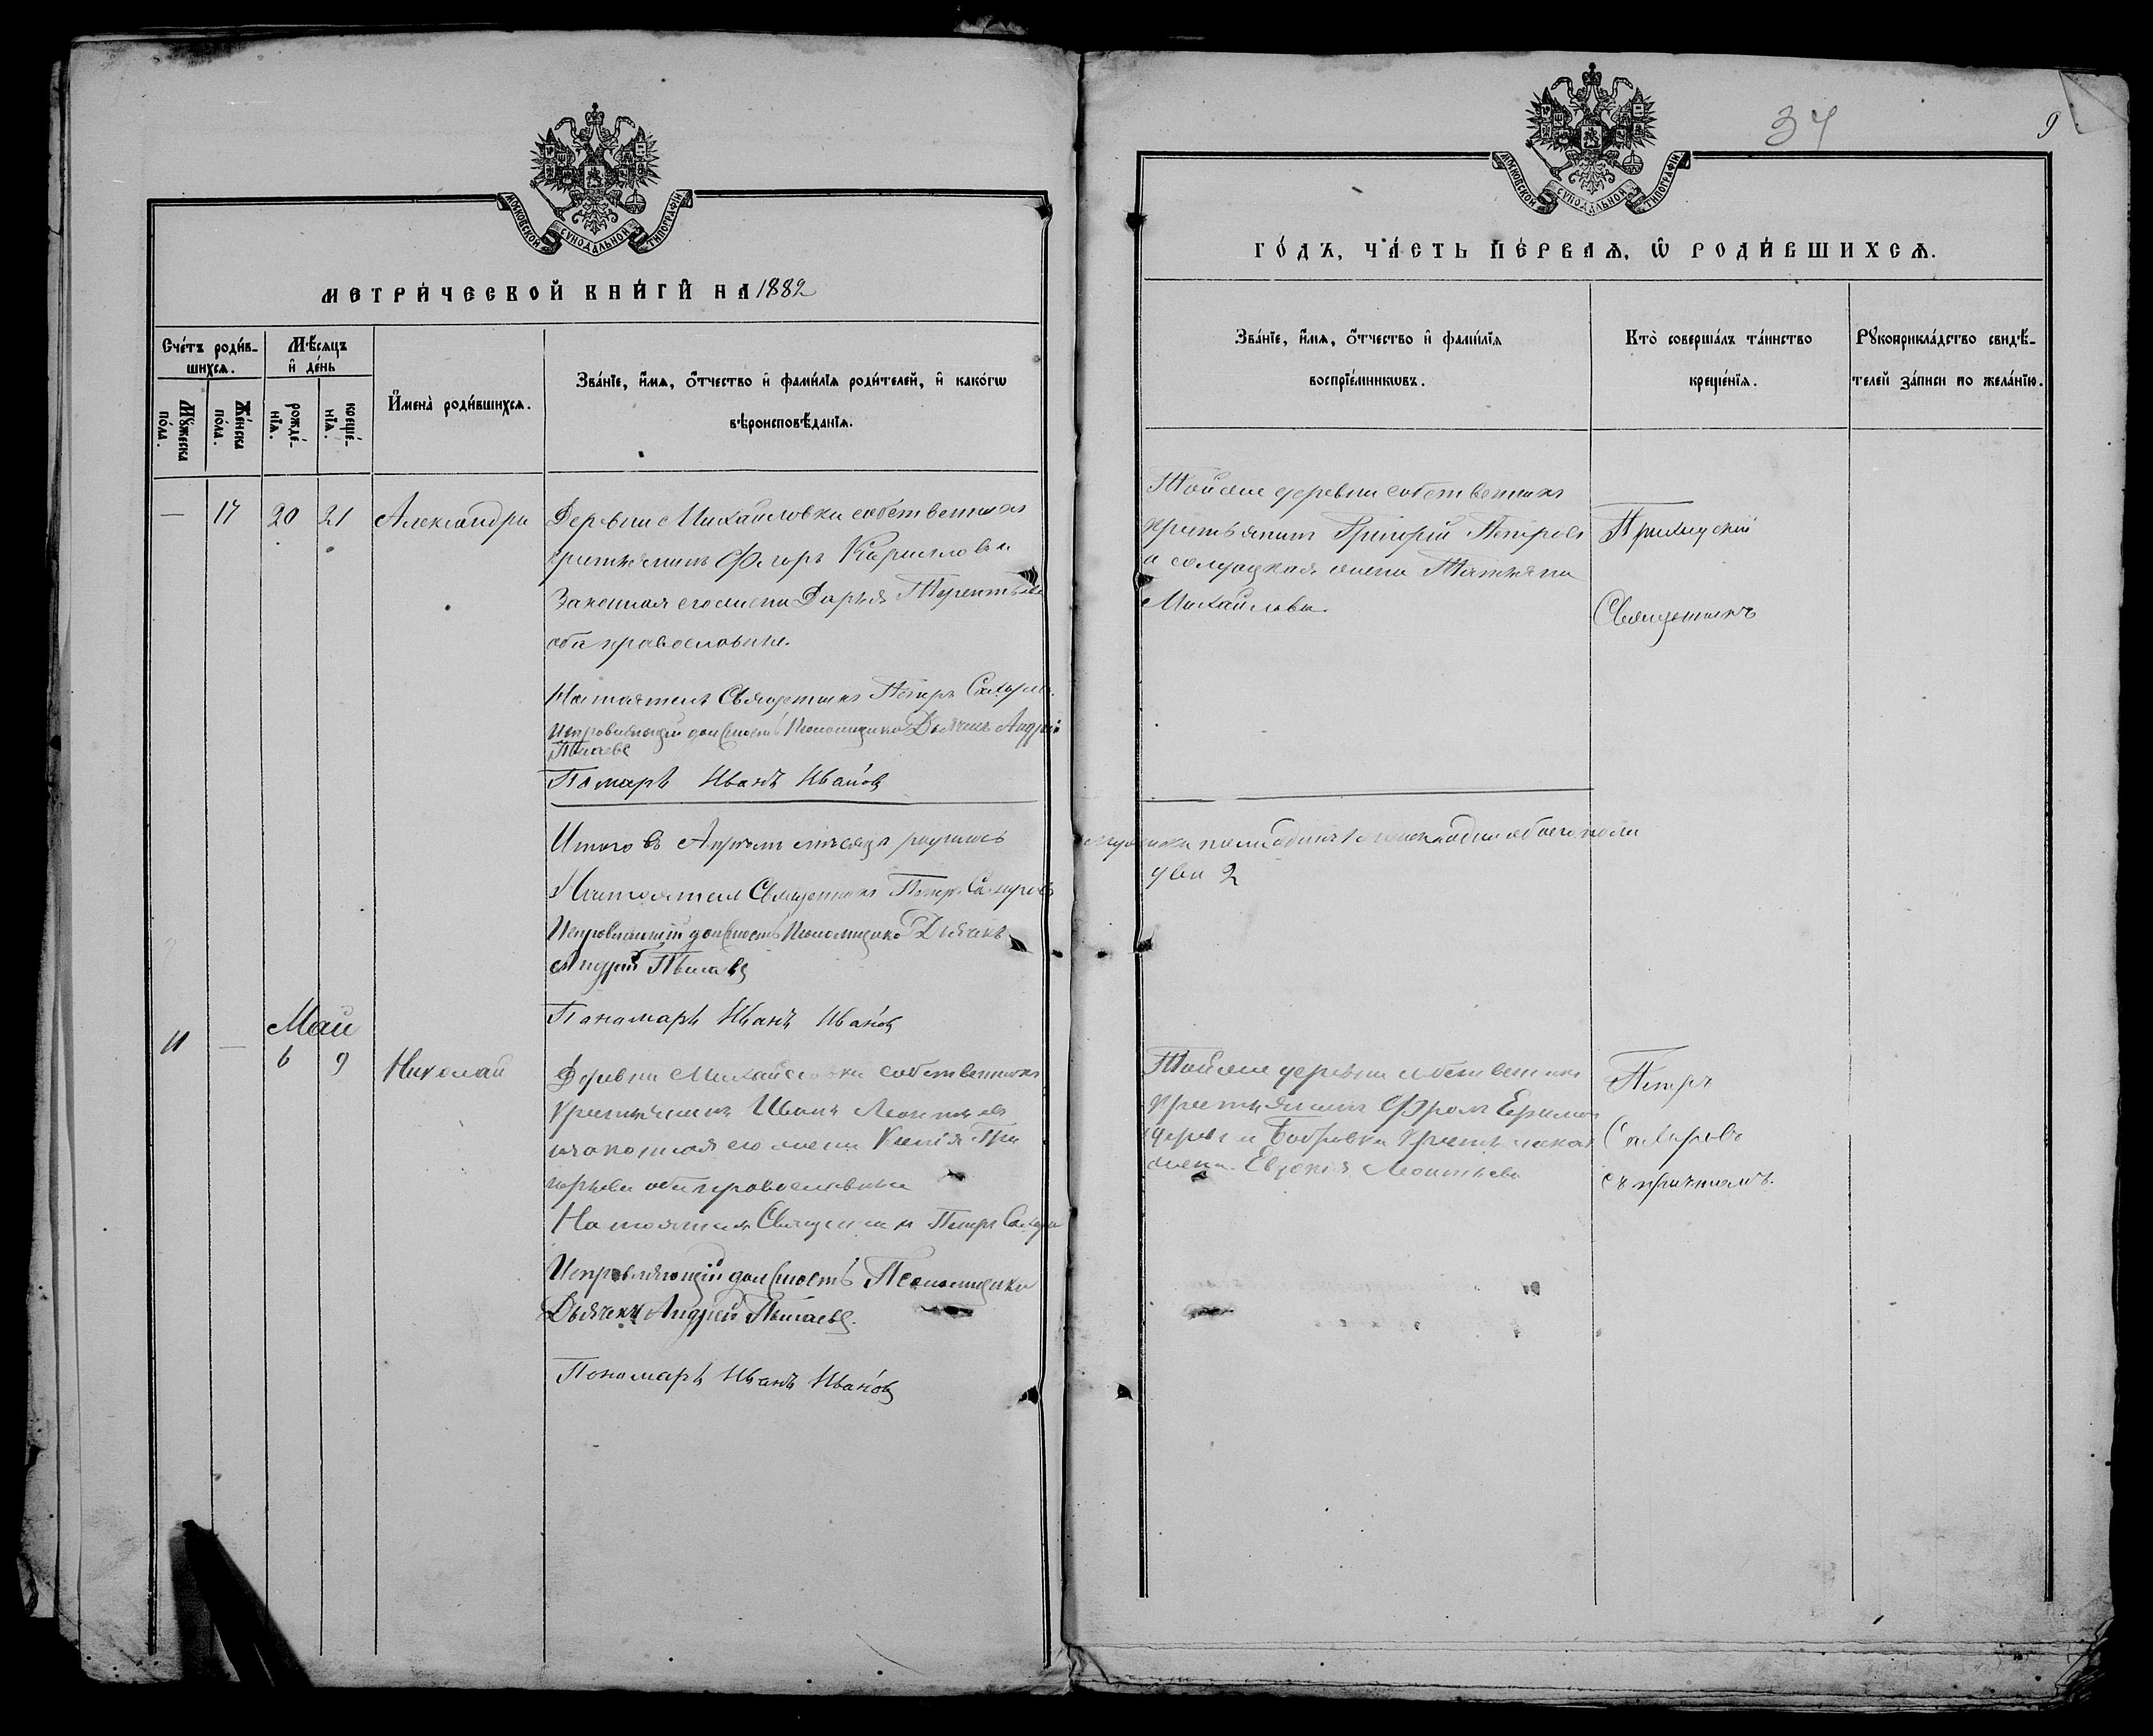 МОСКОВСКОЙ СѴНОДАЛЬНОЙ ТИПОГРАФІИ
МЕТРИ́ЧЕСКОЙ КНИ́ГИ НА 1882
Сче́тъ роди́в-
шихсѧ.
Мꙋ́жеска
по́ла.
Же́нска
по́ла.
Мѣ́сѧцъ
и҆ де́нь
рожде́-
нїѧ.
креще́-
нїѧ.
И҆мена̀ роди́вшихсѧ.
Зва́нїе, и҆́мѧ, ѻ҆́тчество и҆ фами́лїѧ роди́телей, и҆ како́гѡ
вѣроисповѣ́данїѧ.
— 17 20 21 Александра
Деревни Михайловки собственникъ
крестьянинъ Кирилловъ и
Законная его жена Дарья Терентьева
оба православные.
Настоятель Священникъ Петръ Сахаровъ
Исправляющій должность Псаломщика Дьячекъ Андрей
Пономарь Иванъ Ивановъ
Итого въ Апрѣлѣ мѣсяцѣ родилось
Настоятель Священникъ Петръ Сахаровъ
Исправляющій должность Псаломщика Дьячекъ
Андрей
Пономарь Иванъ Ивановъ
Май
11 — 6 9 Николай
Деревни Михайловки собственникъ
крестьянинъ Иванъ Леонтьевъ
и законная его жена Ксенія Гри
горьева оба православные
Настоятель Священникъ Петръ Сахаровъ
Исправляющій должность Псаломщика
Дьячекъ Андрей
Пономарь Иванъ Ивановъ
34
9
МОСКОВСКОЙ СѴНОДАЛЬНОЙ ТИПОГРАФІИ
ГО́ДЪ, ЧА́СТЬ ПЕ́РВАѦ, Ѡ҆ РОДИ́ВШИХСѦ.
Зва́нїе, и҆́мѧ, ѻ҆́тчество и҆ фами́лїѧ
воспрїе́мникѡвъ.
Кто̀ соверша́лъ та́инство
креще́нїѧ.
Рꙋкоприкла́дство свидѣ́-
телей за́писи по жела́нїю.
Той же деревни собственникъ
крестьянинъ Григорій Петровъ
и солдатская жена Татьяна
Михайлова.
Приходскій
Священникъ
мужеска пола одинъ 1 женска одна обоего пола
два 2
Той же деревни собственникъ
крестьянинъ
деревни Бобровки крестьянская
жена Евдокія Леонтьева
Петръ
Сахаровъ
съ причтомъ.